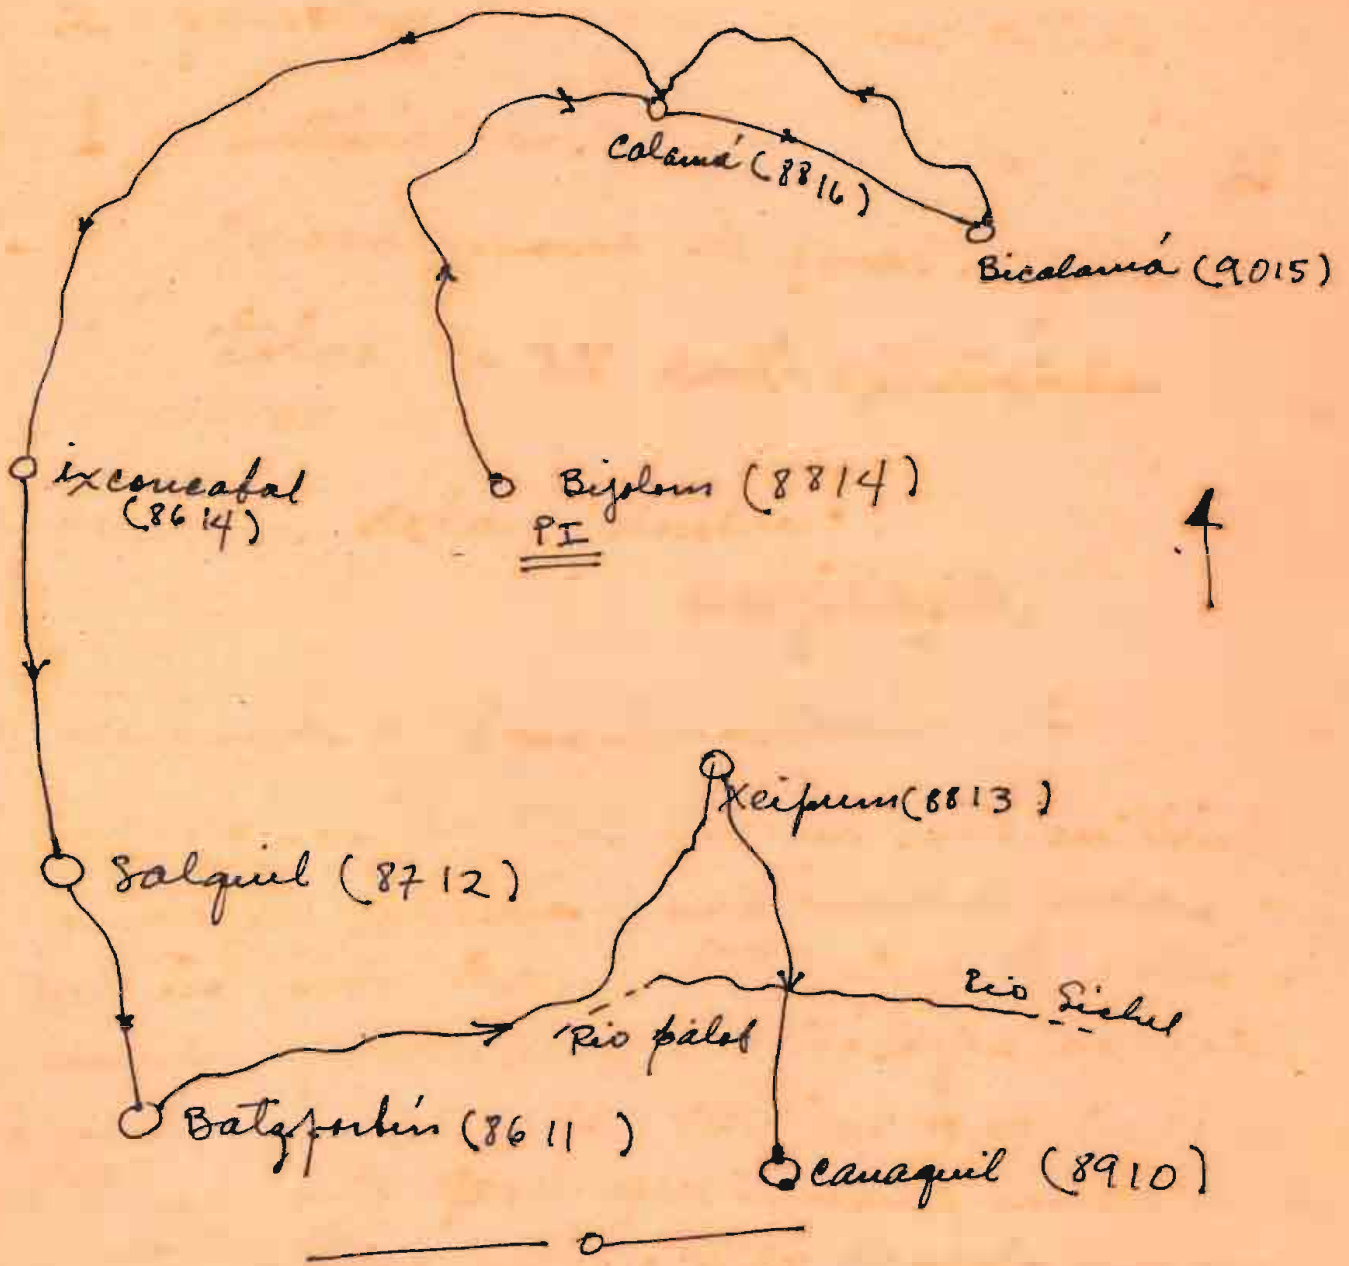 Calamá (8816)
Bicalamá (9015)
ixconcabal
(8614)
Bijolom (8814)
PI
Xeipum (8813)
Salquil (8712)
Rio Sichel
Rio pálob
Batzporbín (8611)
Canaquil (8910)